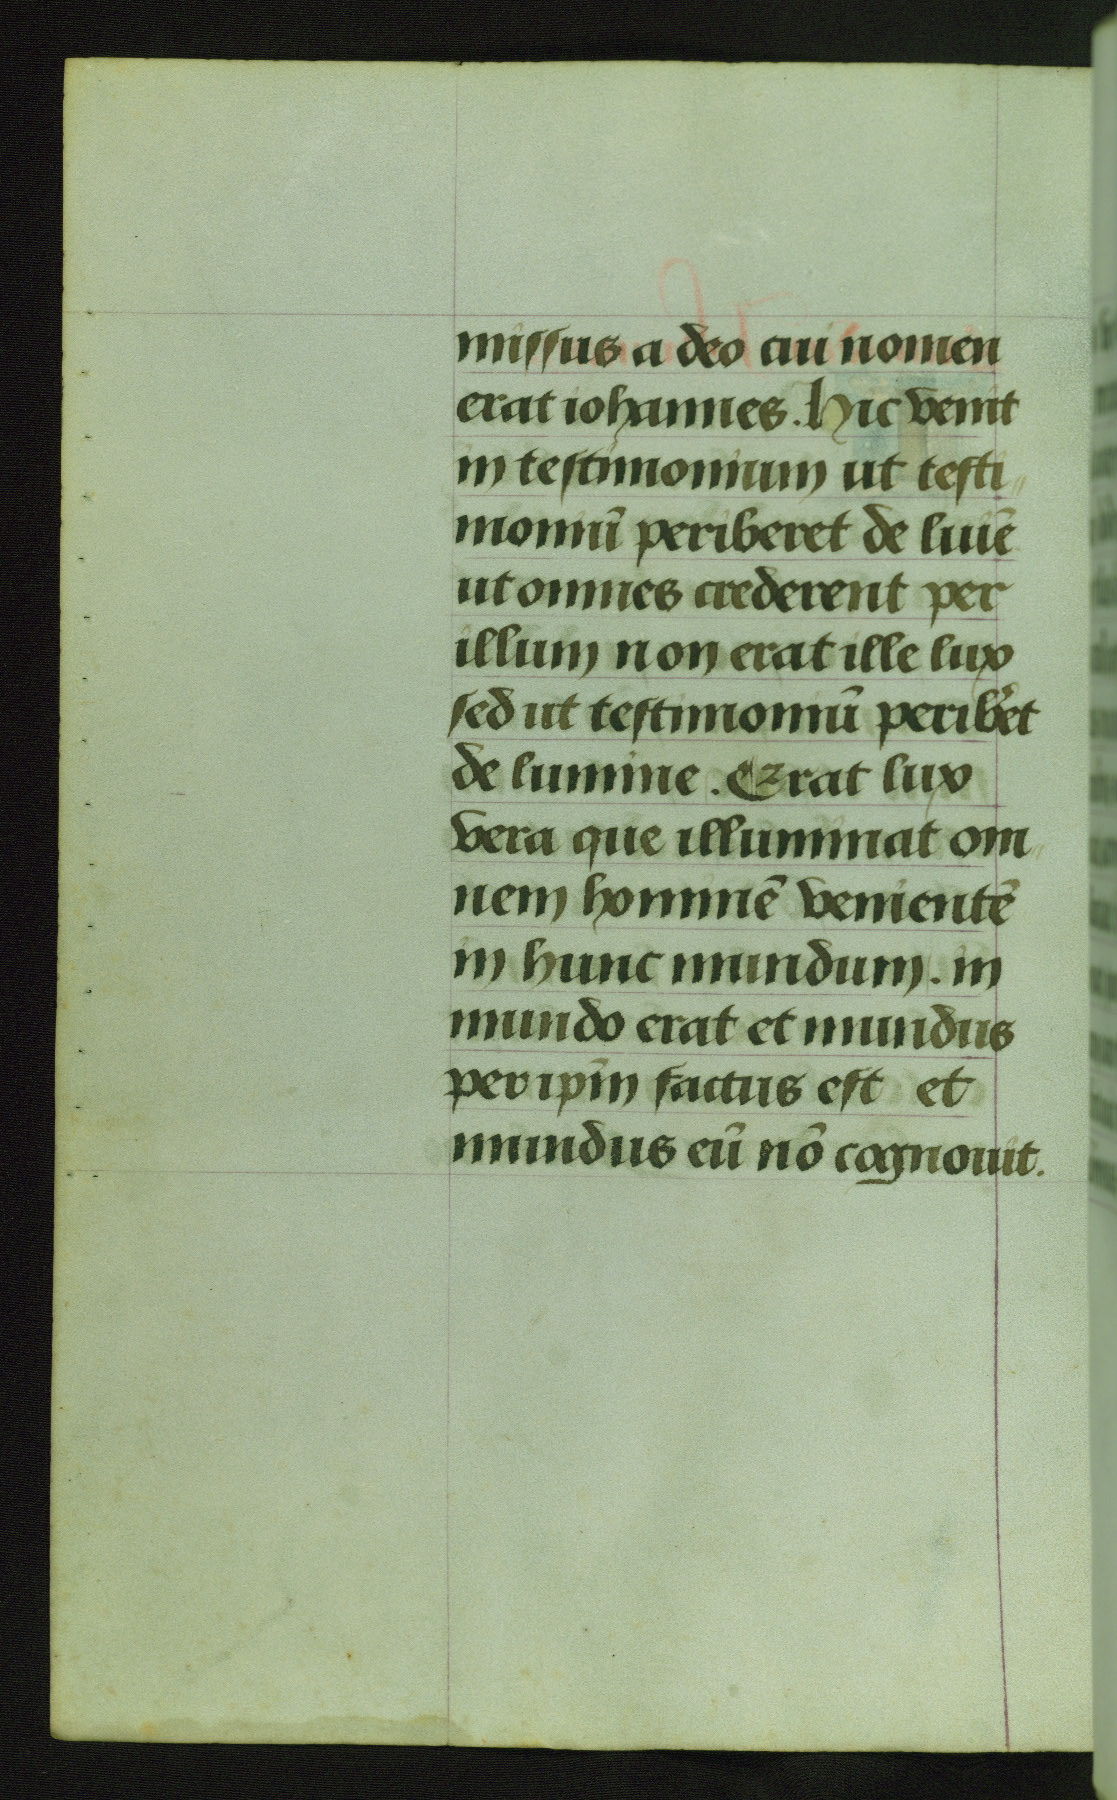 missus a deo cui nomen
erat iohannes. Hic venit
in testimonium ut testi
moniū periberet de luīē
ut omnes crederent per
illum non erat ille lux
sed ut testimoniū perib̄et
de lumine. Erat lux
vera que illuminat om
nem hominē venientē
in hunc mundum. in
mundo erat et mundus
per ip̄m factus est et
mundus eū nō cognouit.